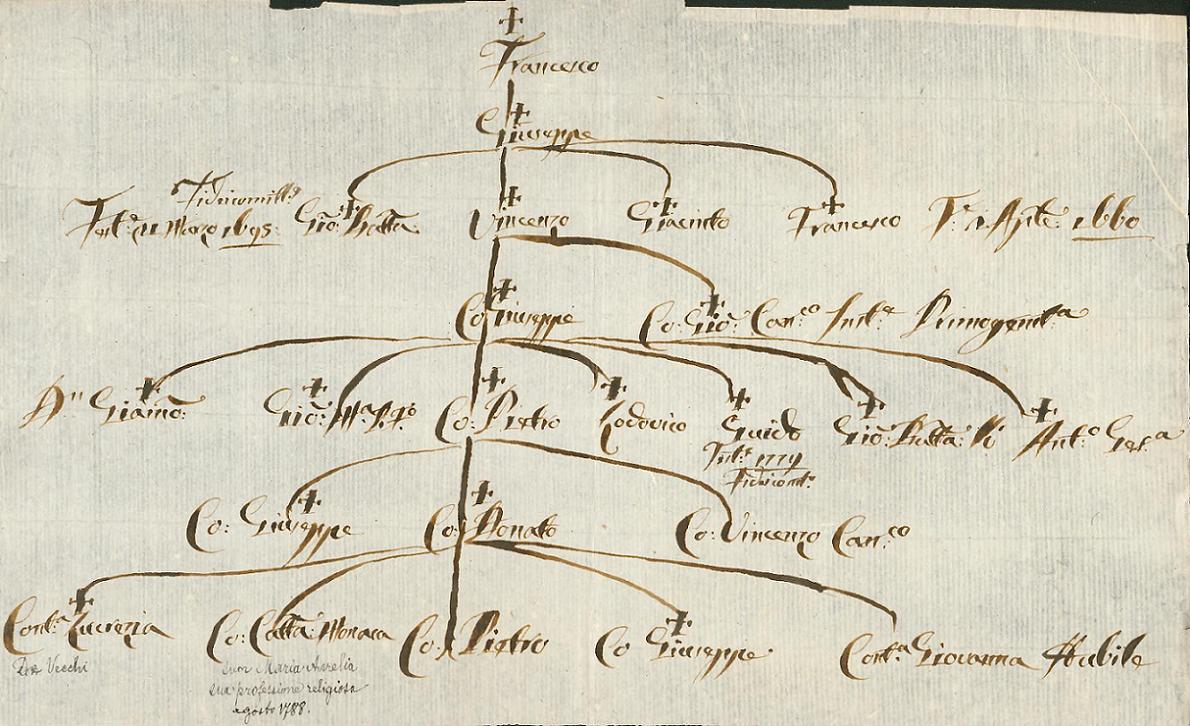 Francesco
Giuseppe
Fideicomiss.º
Test.º 11 Marzo 1695: Gio: Batta: Vincenzo Giacinto Francesco T.º 1 Aprile 1660
Co: Giuseppe Co: Gio: Can.co Primogenit.a
Gio: Co: Pietro Lodovico Guido Gio: Batta: Ant.o
1779
Co: Giuseppe Co: Donato Co: Vincenzo Can.co
Cont.a Lucrezia Co: Catta: Monaca Co: Pietro Co Giuseppe Cont.a Giovanna Nubile
Vecchi
Suor Maria Aurelia
sua professione religiosa
agosto 1788.